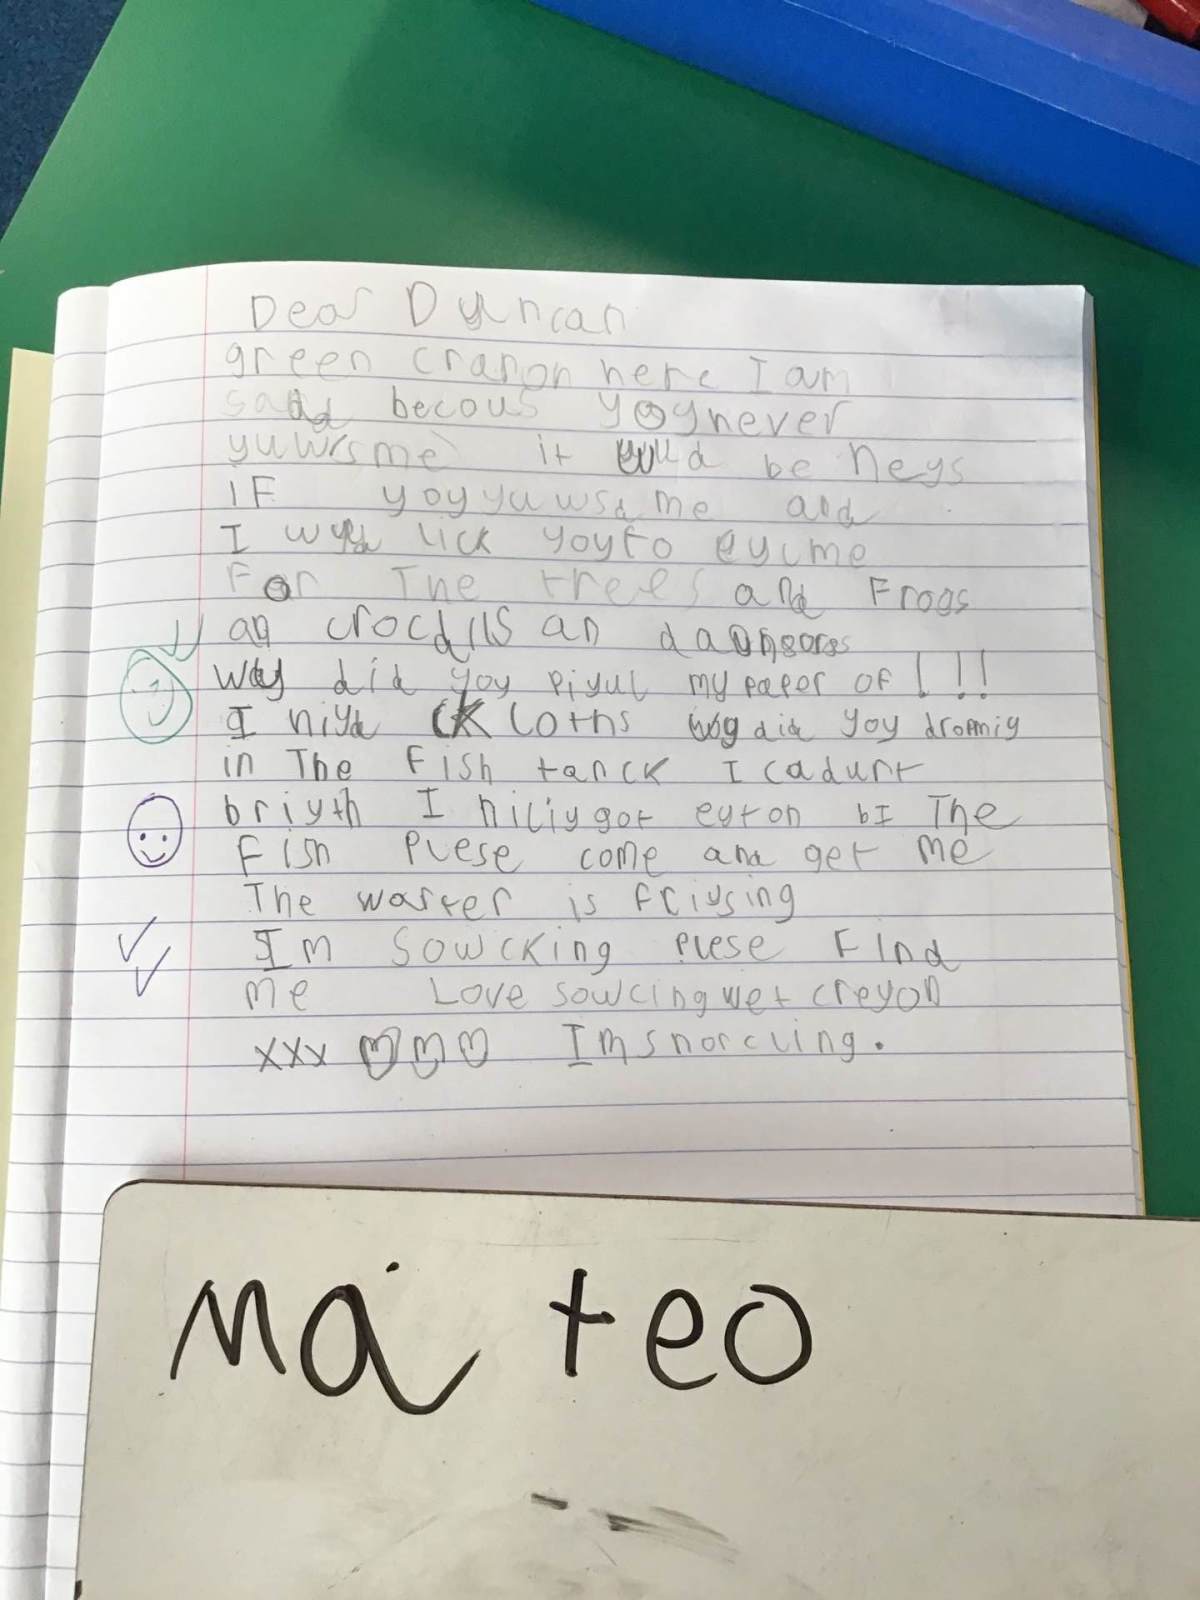 Dear Duncan
green cranon here I am
sad becous yoy never
yuwsme it wud be neys
iF yoy yuwsd me and
I wyd lick yoy to eyime
For The trees and Frogs
an crocdils an
way did yoy piyul my paper of !!!
I niyd cloths way did yoy dropmiy
in The Fish tanck I cadunt
briyth I niliy got eyton bI The
Fish Plese come and get me
The warter is friysing
Im sowcking plese Find
me Love sowcing wet creyon
xxx Im snorcling.
mateo